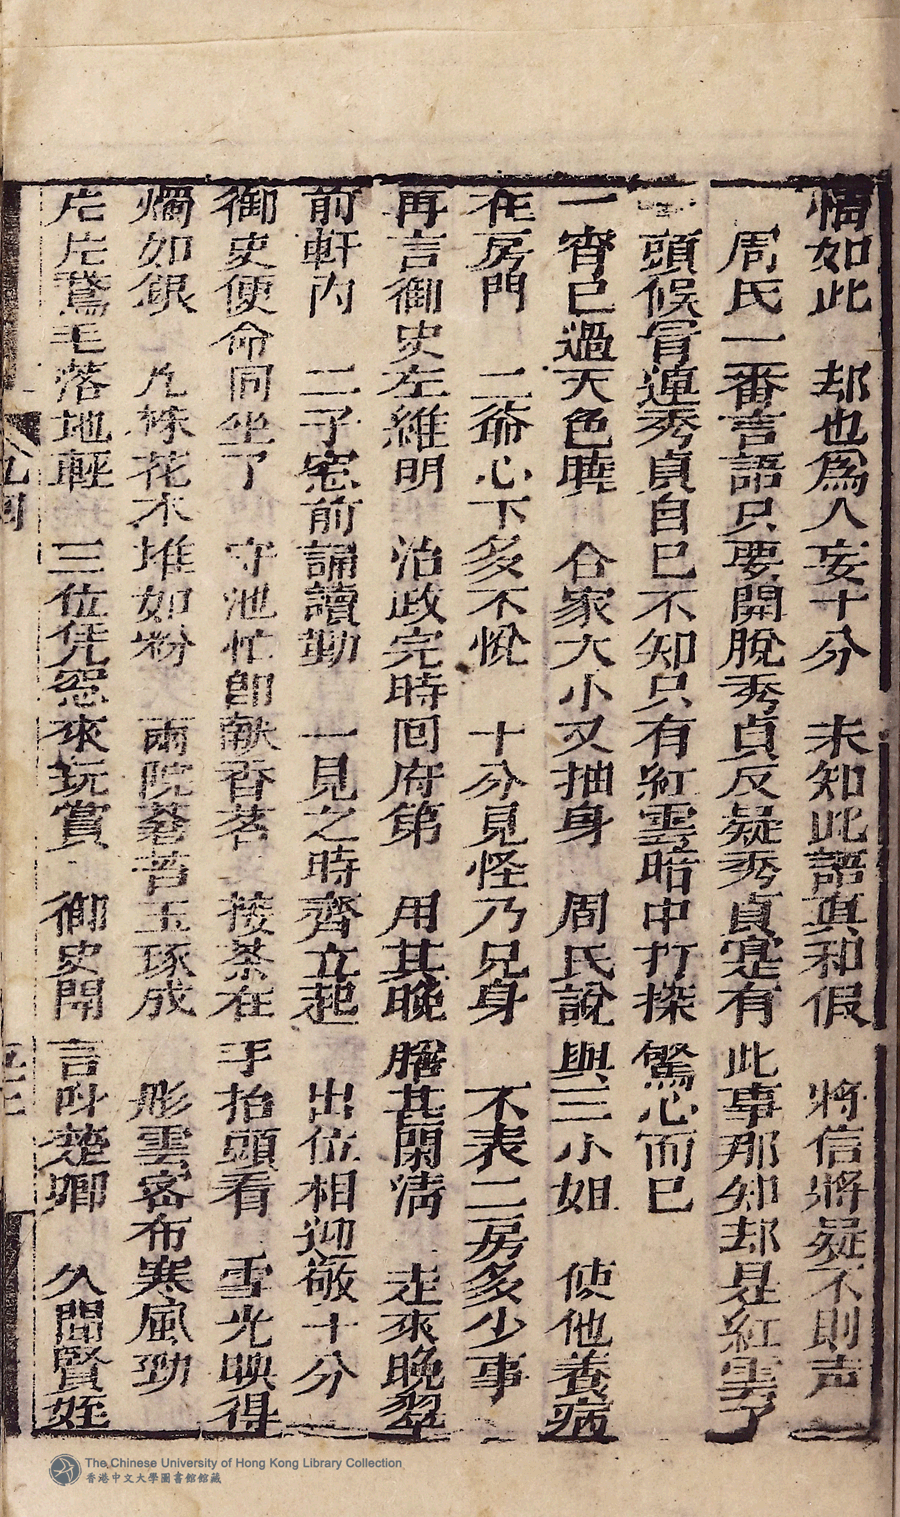 情如此　却也為人妄十分　未知此語真和假　將信將疑不則声
周氏一番言語只要開脫秀貞反疑秀貞寔有此事那知却是紅雲了
頭候冒連秀貞自已不知只有紅雲暗中打探驚心而已
一宵已過天色曉　合家大小又抽身　周氏說與三小姐　使他養病
在房門　二爺心下多不悅　十分見怪乃兄身　不表二房多少事
再言御史左維明　治政完時囘府第　用其晚膳甚閑淸　走來晚翠
前軒內　二子窓前誦讀勤　一見之時齊立起　出位相迎敬十分
御史便命同坐了　守池忙卽献香茗　接茶在手抬頭看　雪光映得
燭如銀　几株花木堆如粉　兩院蒼苔玉琢成　彤雲密布寒風勁
片片鵞毛落地輕　三位凭窓來玩賞　御史開言呌楚卿　久聞賢姪
九囘
The Chinese University of Hong Kong Library Collection
香港中文大學圖書館館藏